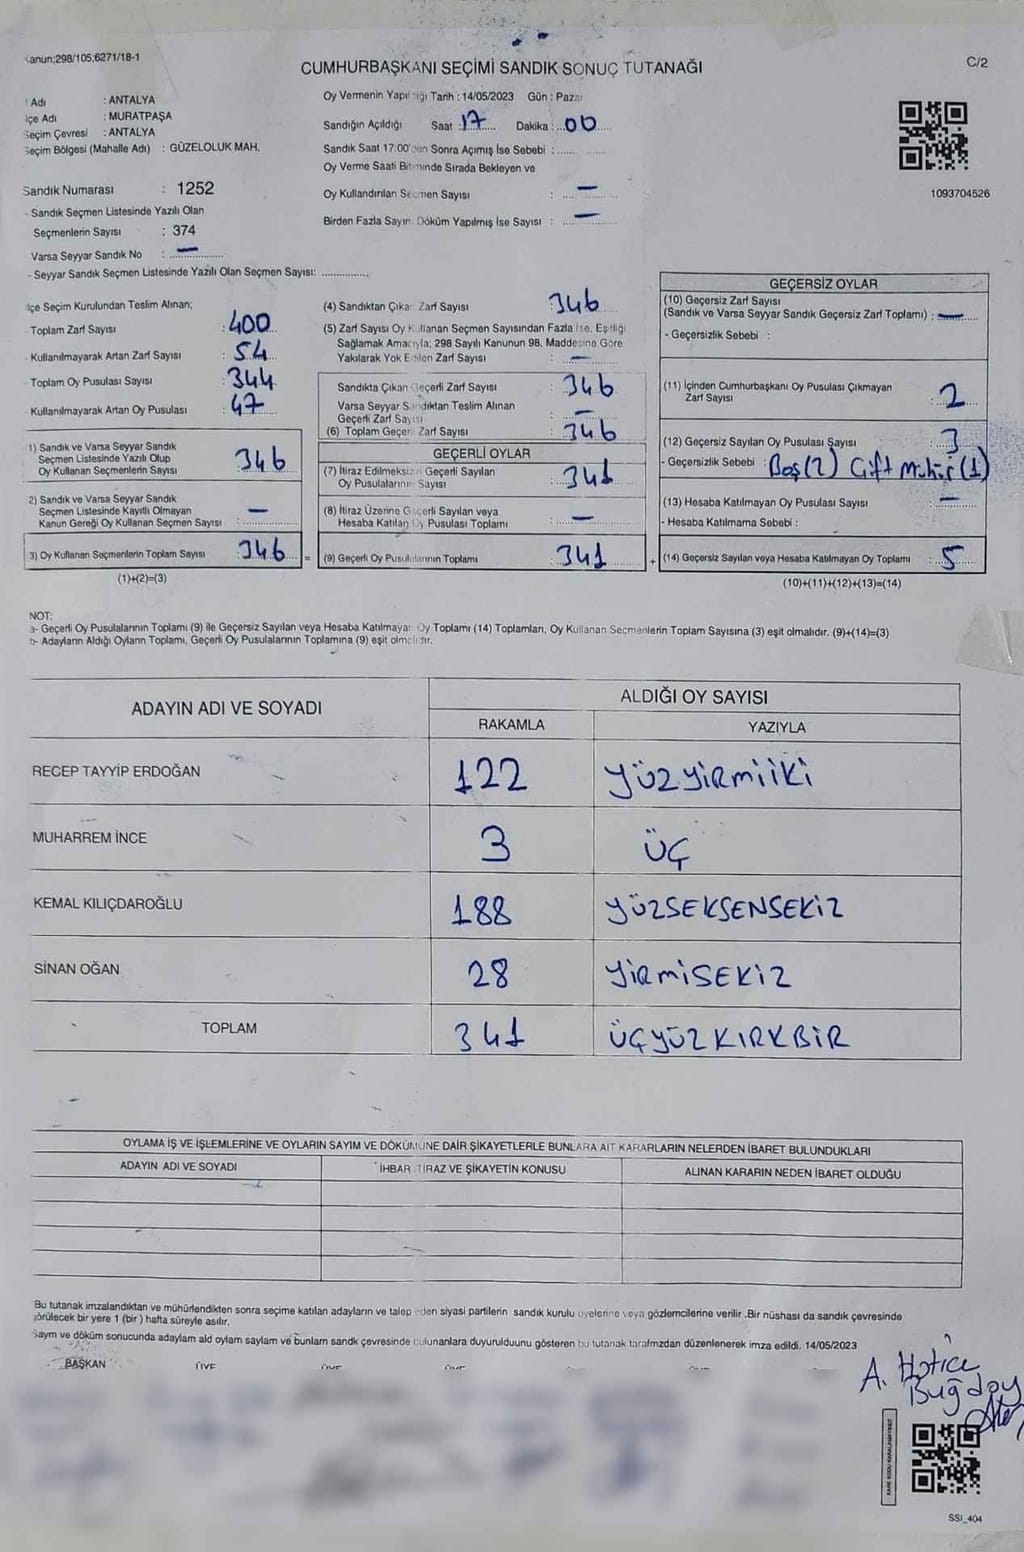 Kanun;298/105;6271/18-1
CUMHURBAŞKANI SEÇİMİ SANDIK SONUÇ TUTANAĞI
C/2
Adı : ANTALYA
İlçe Adı : MURATPAŞA
Seçim Çevresi : ANTALYA
Seçim Bölgesi (Mahalle Adı) : GÜZELOLUK MAH.
Sandık Numarası : 1252
- Sandık Seçmen Listesinde Yazılı Olan
Seçmenlerin Sayısı : 374
Varsa Seyyar Sandık No : —
- Seyyar Sandık Seçmen Listesinde Yazılı Olan Seçmen Sayısı: ...............
Oy Vermenin Yapıldığı Tarih : 14/05/2023 Gün : Pazar
Sandığın Açıldığı Saat : 17 Dakika : 00
Sandık Saat 17:00'den Sonra Açımış İse Sebebi : ............
Oy Verme Saati Bitiminde Sırada Bekleyen ve
Oy Kullandırılan Seçmen Sayısı : —
Birden Fazla Sayım Döküm Yapılmış İse Sayısı : —
1093704526
İlçe Seçim Kurulundan Teslim Alınan;
Toplam Zarf Sayısı : 400
- Kullanılmayarak Artan Zarf Sayısı : 54
- Toplam Oy Pusulası Sayısı : 344
- Kullanılmayarak Artan Oy Pusulası : 47
1) Sandık ve Varsa Seyyar Sandık
Seçmen Listesinde Yazılı Olup
Oy Kullanan Seçmenlerin Sayısı 346
2) Sandık ve Varsa Seyyar Sandık
Seçmen Listesinde Kayıtlı Olmayan
Kanun Gereği Oy Kullanan Seçmen Sayısı : —
3) Oy Kullanan Seçmenlerin Toplam Sayısı 346 =
(1)+(2)=(3)
(4) Sandıktan Çıkan Zarf Sayısı 346
(5) Zarf Sayısı Oy Kullanan Seçmen Sayısından Fazla İse, Eşitliği
Sağlamak Amacıyla; 298 Sayılı Kanunun 98. Maddesine Göre
Yakılarak Yok Edilen Zarf Sayısı : —
Sandıkta Çıkan Geçerli Zarf Sayısı : 346
Varsa Seyyar Sandıktan Teslim Alınan
Geçerli Zarf Sayısı : —
(6) Toplam Geçerli Zarf Sayısı : 346
GEÇERLİ OYLAR
(7) İtiraz Edilmeksizin Geçerli Sayılan
Oy Pusulalarının Sayısı : 341
(8) İtiraz Üzerine Geçerli Sayılan veya
Hesaba Katılan Oy Pusulası Toplamı : —
(9) Geçerli Oy Pusulalarının Toplamı : 341 +
GEÇERSİZ OYLAR
(10) Geçersiz Zarf Sayısı
(Sandık ve Varsa Seyyar Sandık Geçersiz Zarf Toplamı) : —
- Geçersizlik Sebebi :
(11) İçinden Cumhurbaşkanı Oy Pusulası Çıkmayan
Zarf Sayısı : 2
(12) Geçersiz Sayılan Oy Pusulası Sayısı : 3
- Geçersizlik Sebebi : Boş(2) Çift Mühür(1)
(13) Hesaba Katılmayan Oy Pusulası Sayısı : —
- Hesaba Katılmama Sebebi :
(14) Geçersiz Sayılan veya Hesaba Katılmayan Oy Toplamı : 5
(10)+(11)+(12)+(13)=(14)
NOT:
a- Geçerli Oy Pusulalarının Toplamı (9) ile Geçersiz Sayılan veya Hesaba Katılmayan Oy Toplamı (14) Toplamları, Oy Kullanan Seçmenlerin Toplam Sayısına (3) eşit olmalıdır. (9)+(14)=(3)
b- Adayların Aldığı Oyların Toplamı, Geçerli Oy Pusulalarının Toplamına (9) eşit olmalıdır.
ADAYIN ADI VE SOYADI ALDIĞI OY SAYISI
RAKAMLA YAZIYLA
RECEP TAYYİP ERDOĞAN 122 yüzyirmiiki
MUHARREM İNCE 3 üç
KEMAL KILIÇDAROĞLU 188 YÜZSEKSENSEKİZ
SİNAN OĞAN 28 YİRMİSEKİZ
TOPLAM 341 ÜÇYÜZKIRKBİR
OYLAMA İŞ VE İŞLEMLERİNE VE OYLARIN SAYIM VE DÖKÜMÜNE DAİR ŞİKAYETLERLE BUNLARA AİT KARARLARIN NELERDEN İBARET BULUNDUKLARI
ADAYIN ADI VE SOYADI İHBAR İTİRAZ VE ŞİKAYETİN KONUSU ALINAN KARARIN NEDEN İBARET OLDUĞU
Bu tutanak imzalandıktan ve mühürlendikten sonra seçime katılan adayların ve talep eden siyasi partilerin sandık kurulu üyelerine veya gözlemcilerine verilir .Bir nüshası da sandık çevresinde
görülecek bir yere 1 (bir ) hafta süreyle asılır.
Saym ve döküm sonucunda adaylam ald oylam saylam ve bunlam sandk çevresinde bulunanlara duyurulduunu gösteren bu tutanak tarafmzdan düzenlenerek imza edildi. 14/05/2023
BAŞKAN ÜYE ÜYE ÜYE ÜYE
A. Hatice
Buğday
SSI_404